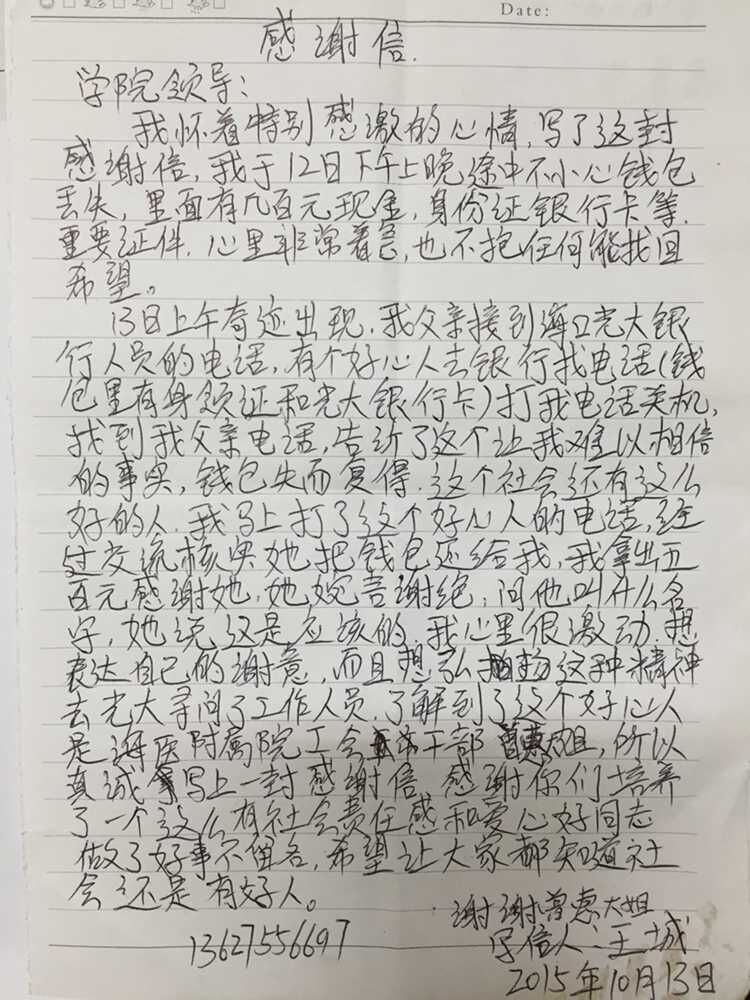 Date:
感谢信.
学院领导:
我怀着特别感激的心情,写了这封
感谢信,我于12日下午上晚途中不小心钱包
丢失,里面有几百元现金,身份证银行卡等.
重要证件.心里非常着急,也不抱任何能找回
希望。
13日上午奇迹出现.我父亲接到海口光大银
行人员的电话,有个好心人去银行找电话(钱
包里有身领证和光大银行卡)打我电话关机,
找到我父亲电话,告诉了这个让我难以相信
的事实,钱包失而复得.这个社会还有这么
好的人.我马上打了这个好心人的电话,经
过交流核实她把钱包还给我,我拿出五
百元感谢她,她婉言谢绝,问他叫什么名
字,她说这是应该的,我心里很激动.想
表达自己的谢意,而且想弘扬这种精神
去光大寻问了工作人员.了解到了这个好心人
是海医附属院工会干部曾惠大姐,所以
真诚写上一封感谢信 感谢你们培养
了一个这么有社会责任感和爱心好同志
做了好事不留名,希望让大家都知道社
会还是有好人。
谢谢曾惠大姐
13627556697
写信人:王城
2015年10月13日